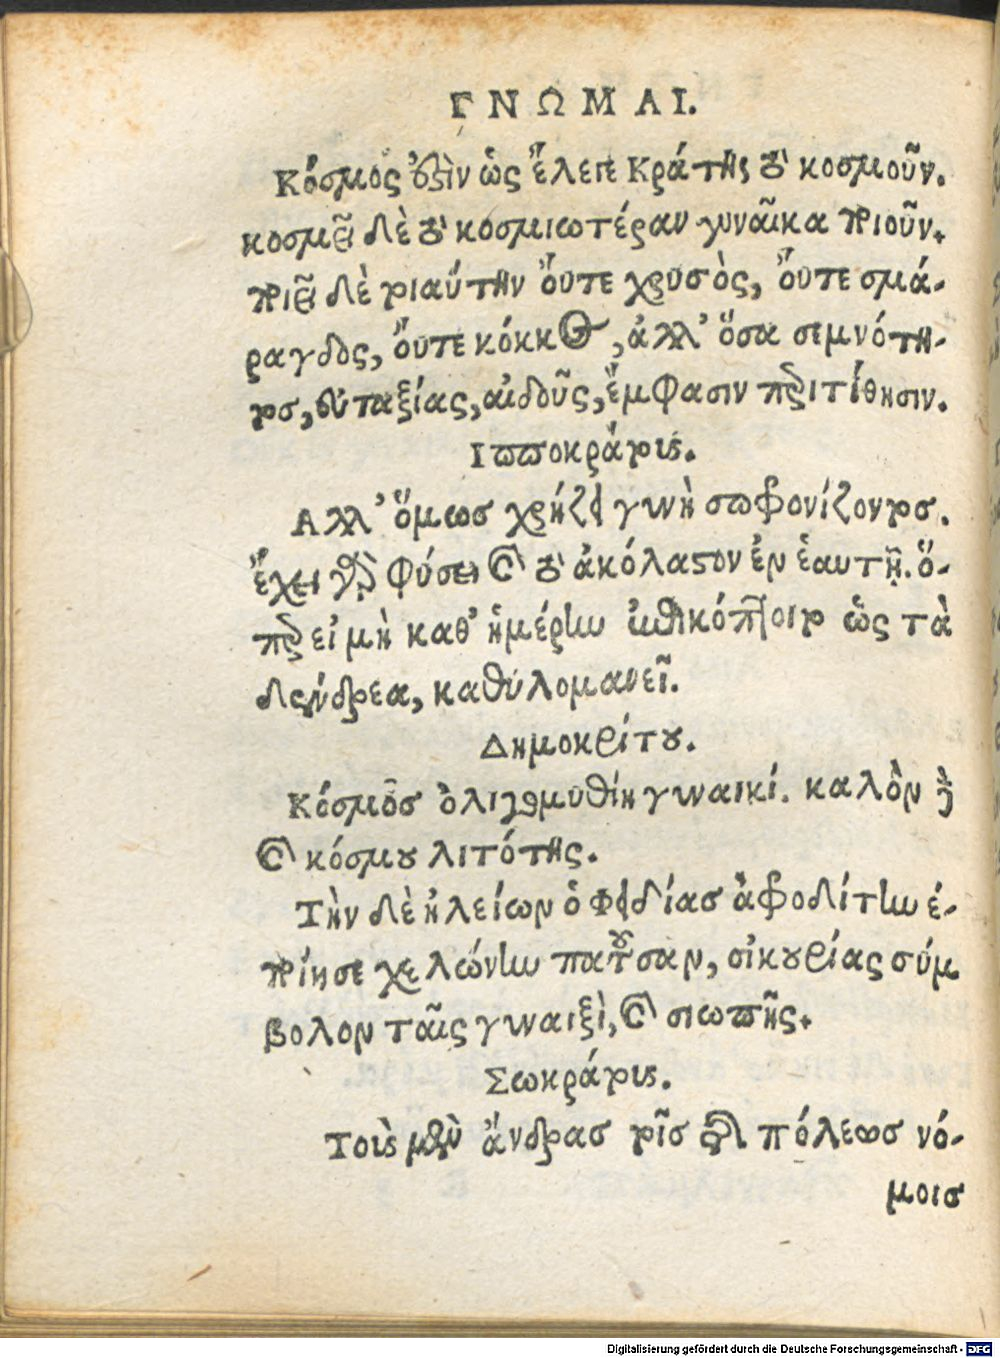 ΓΝΩΜΑΙ.
Κόσμος ὀξὶν ὡς ἔλεγε Κράτης τὸ κοσμοῦν.
κοσμεῖ δὲ τὸ κοσμιωτέραν γυναῖκα ποιοῦν.
ποιεῖ δὲ τοιαύτην οὔτε χρυσὸς, οὔτε σμά-
ραγδος, οὔτε κόκκος, ἀλλ' ὅσα σεμνότη-
τος, εὐταξίας, αἰδοῦς, ἔμφασιν περιτίθησιν.
Ιπποκράτους.
Αλλ' ὅμως χρήζει γυνὴ σωφρονίζοντος.
ἔχει γὰρ φύσει τὸ ἀκόλαστον ἐν ἑαυτῇ. ὅ-
περ εἰ μὴ καθ' ἡμέρην ὡς τὰ
δένδρεα, καθυλομανεῖ.
Δημοκρίτου.
Κόσμος ὀλιγομυθίη γυναικί. καλὸν δὲ
καὶ κόσμου λιτότης.
Τὴν δὲ ἠλείων ὁ Φειδίας ἀφροδίτην ἐ-
ποίησε χελώνην πατοῦσαν, οἰκουρίας σύμ
βολον ταῖς γυναιξὶ, καὶ σιωπῆς.
Σωκράτους.
Τοὺς μὲν ἄνδρας τοῖς τῆς πόλεως νό-
μοις
Digitalisierung gefördert durch die Deutsche Forschungsgemeinschaft - DFG